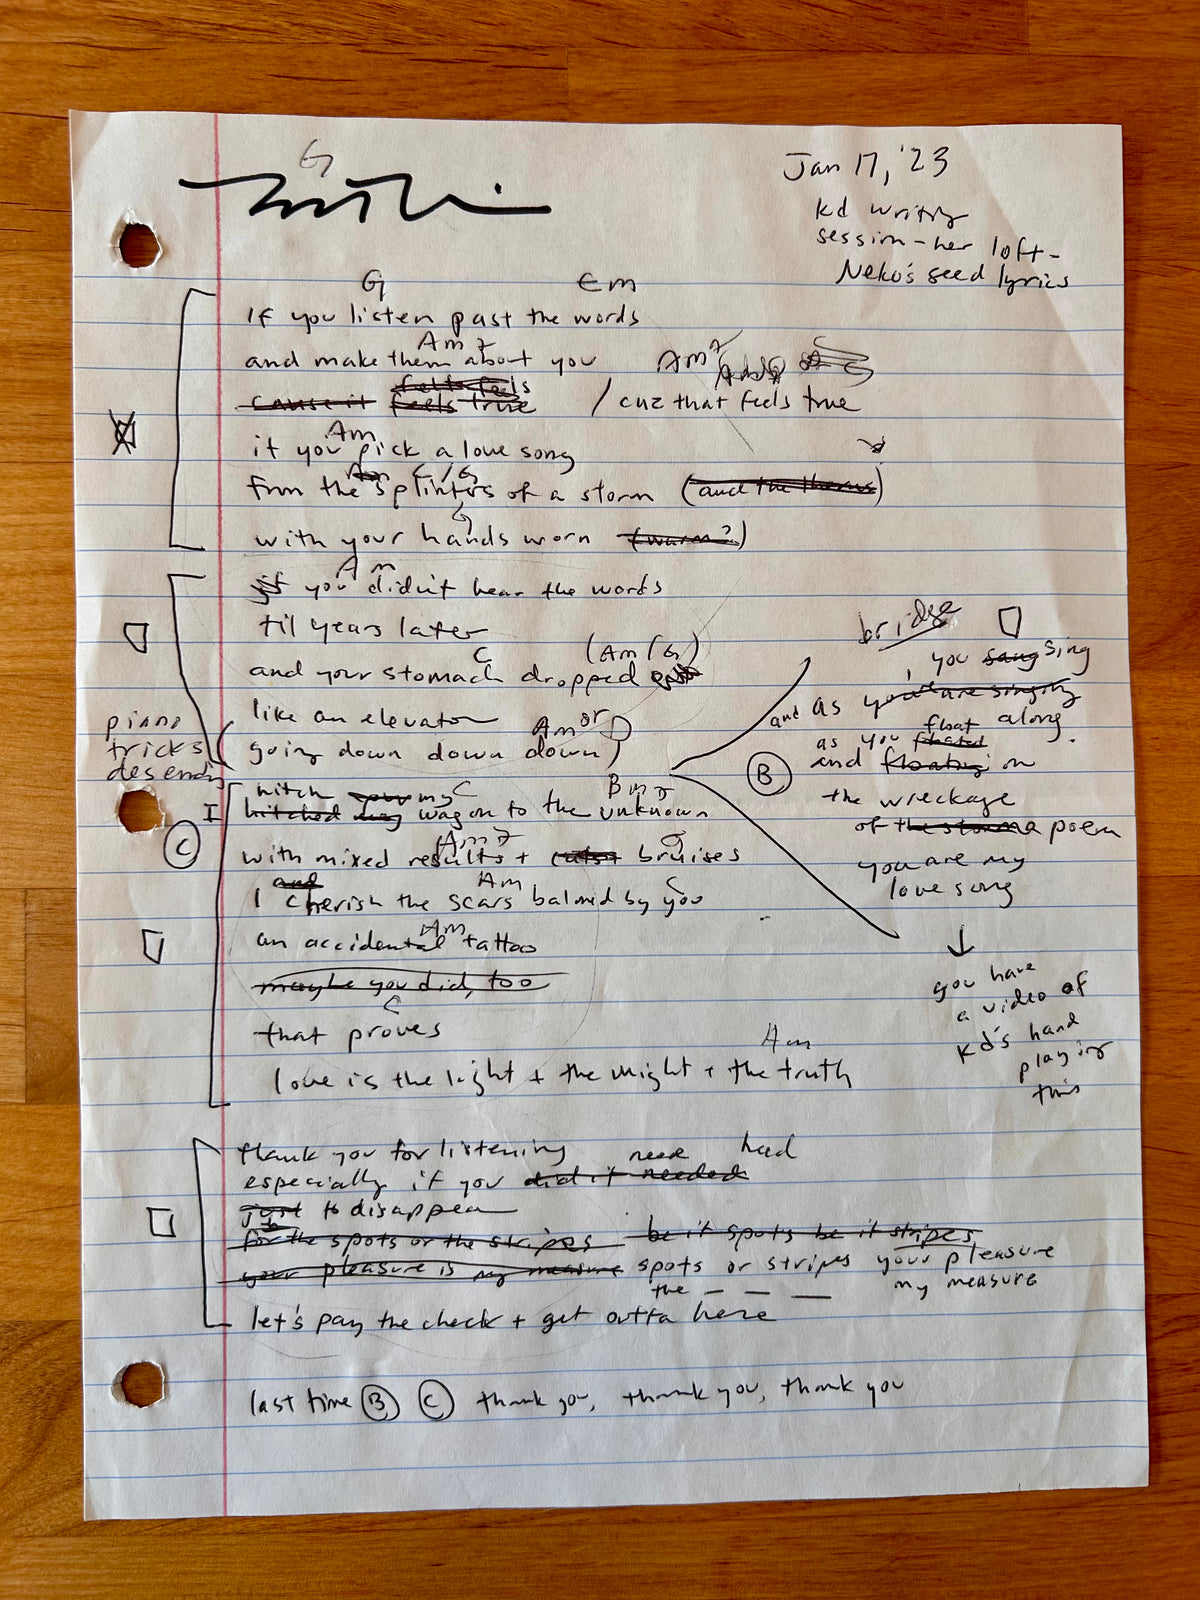 G
Jan 17, '23
kd writing
session - her loft -
Neko's seed lyrics
G Em
If you listen past the words
Am7
and make them about you
Am7
felt feels
cause it feels true / cuz that feels true
Am
if you pick a love song
Am C/G
from the splinters of a storm (and the thorns)
G
with your hands worn (warm?)
Am
if you didn't hear the words
til years later
C (Am/G)
and your stomach dropped
like an elevator
Am or D
(going down down down)
piano
tricks
descending
bridge
you sang sing
and as you are singing
along
as you float
floated
B
and floating on
the wreckage
of the storm a poem
you are my
love song
↓
you have
a video of
kd's hand
playing
this
hitch your my C Bm7
I hitched my wagon to the unknown
C
Am7 G
with mixed results + cuts + bruises
and Am C
I cherish the scars balmed by you
Am
an accidental tattoo
maybe you did, too
C
that proves
Am
love is the light + the might + the truth
thank you for listening
need had
especially if you did it needed
just to disappear
for the spots or the stripes be it spots be it stripes
your pleasure is my measure spots or stripes your pleasure
the _ _ _ my measure
let's pay the check + get outta here
last time B C thank you, thank you, thank you